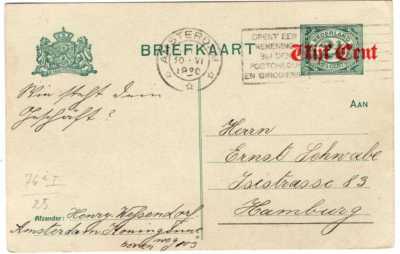 BRIEFKAART
AMSTERDAM
10·VI
1920
OPENT EEN
REKENING
BIJ DEN
POSTCHEQUE
EN GIRODIENST
NEDERLAND
Vijf Cent
Wie steht dem
Geschäft?
AAN
Herrn
Ernst Schwabe
Isestrasse 83
Hamburg
76a I
25
Afzender: Henry Wessendorf
Amsterdam Koninginne
weg
boven